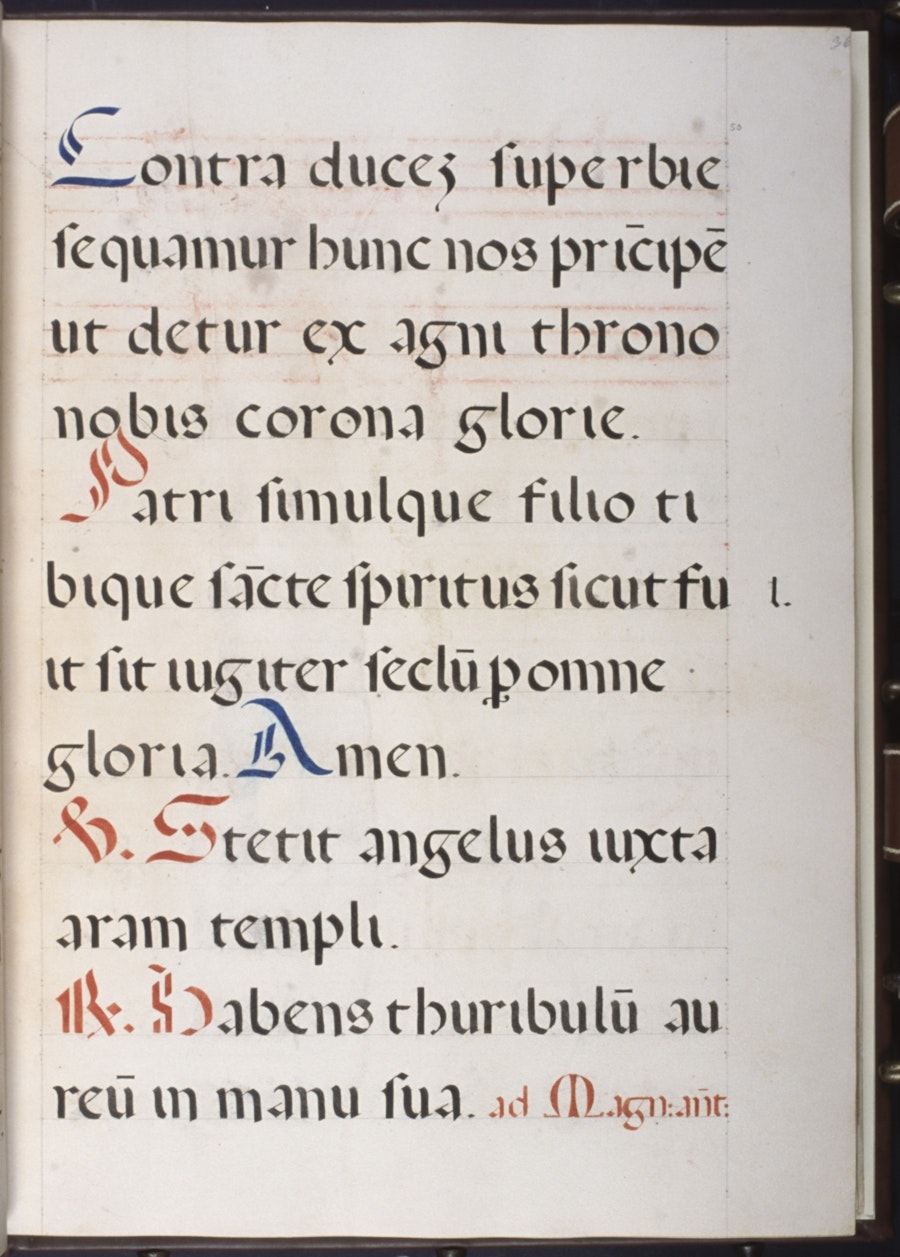 36
50
Contra duceʒ ſuperbie
ſequamur hunc nos prīcipē
ut detur ex agni throno
nobis corona glorie.
Patri ſimulque filio ti
bique ſācte ſpiritus ſicut fu
l.
it ſit iugiter ſeclū ꝑ omne
gloria. Amen.
℣. Stetit angelus iuxta
aram templi.
℟. Habens thuribulū au
reū in manu ſua. ad Magn: an̄t: